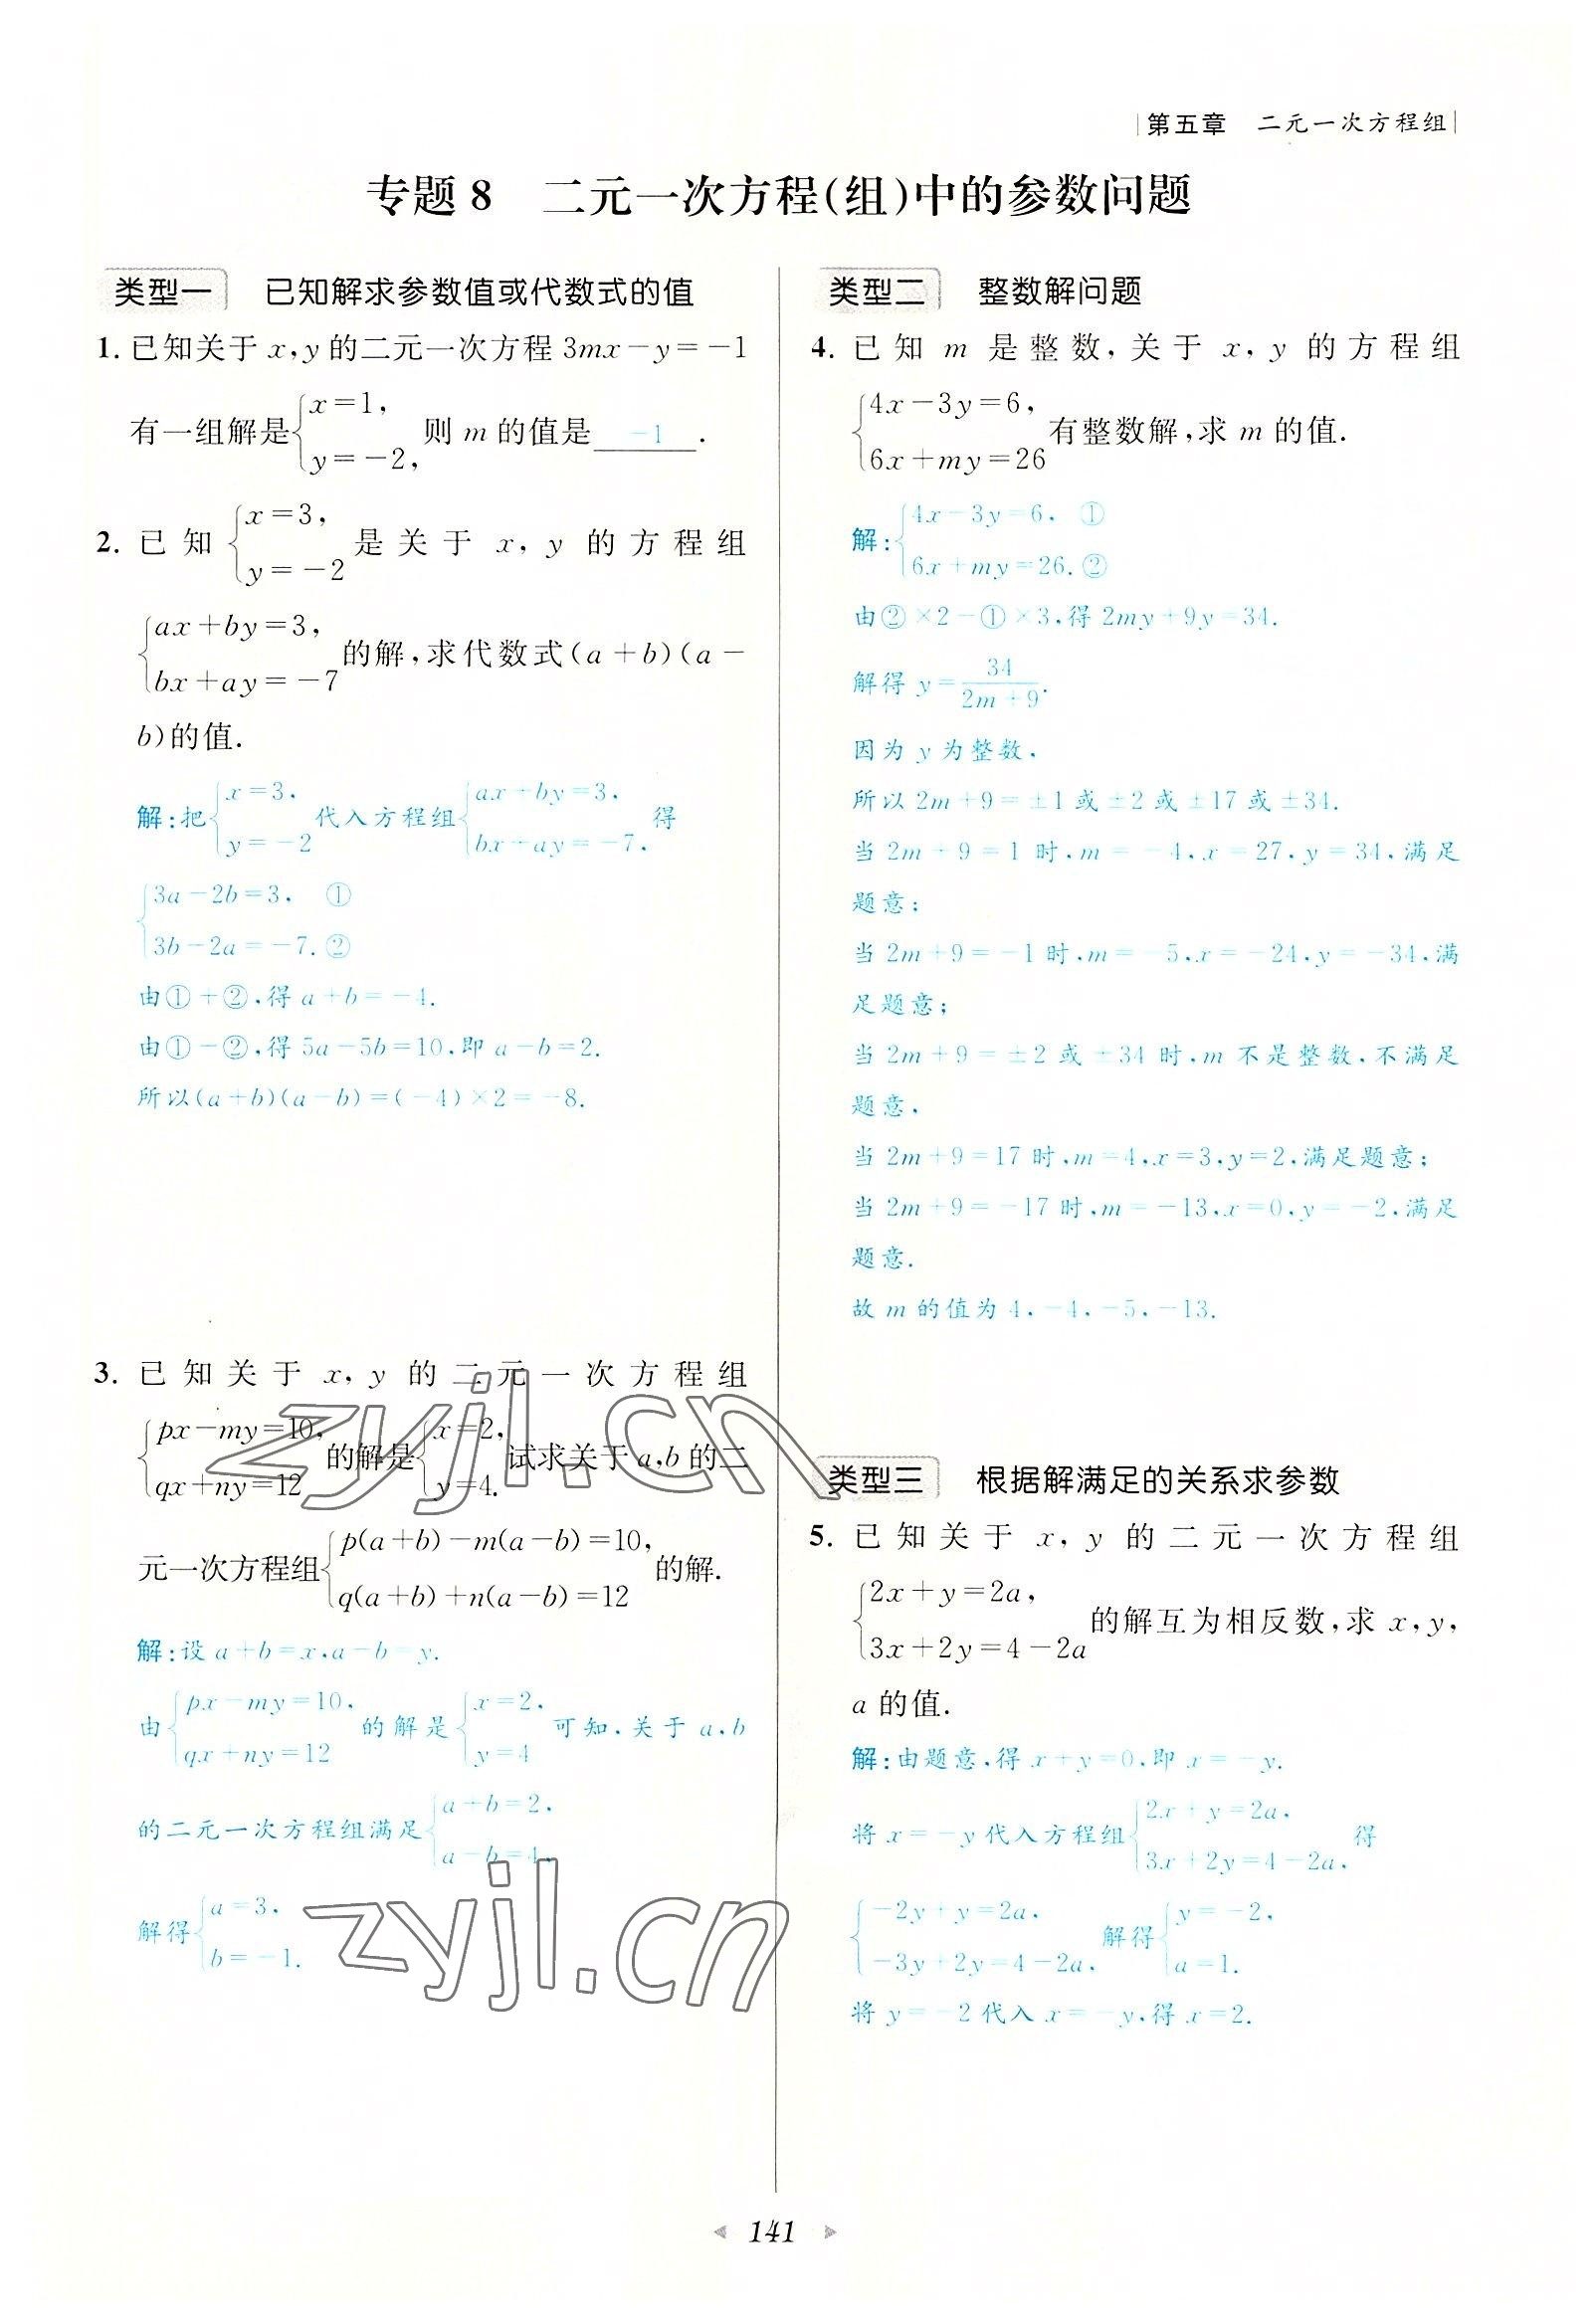 第五章 二元一次方程组
专题8 二元一次方程(组)中的参数问题
类型一 已知解求参数值或代数式的值
1. 已知关于x,y的二元一次方程3mx-y=-1
有一组解是{x=1, y=-2, 则m的值是 -1 .
2. 已知{x=3, y=-2 是关于x,y的方程组
{ax+by=3, bx+ay=-7 的解,求代数式(a+b)(a-
b)的值.
解:把{x=3, y=-2 代入方程组{ax+by=3, bx+ay=-7, 得
{3a-2b=3, ①
3b-2a=-7. ②
由①+②,得a+b=-4.
由①-②,得5a-5b=10,即a-b=2.
所以(a+b)(a-b)=(-4)×2=-8.
3. 已知关于x,y的二元一次方程组
{px-my=10, qx+ny=12 的解是{x=2, y=4. 试求关于a,b的二
元一次方程组{p(a+b)-m(a-b)=10, q(a+b)+n(a-b)=12 的解.
解:设a+b=x,a-b=y.
由{px-my=10, qx+ny=12 的解是{x=2, y=4 可知,关于a,b
的二元一次方程组满足{a+b=2, a-b=4,
解得{a=3, b=-1.
类型二 整数解问题
4. 已知m是整数,关于x,y的方程组
{4x-3y=6, 6x+my=26 有整数解,求m的值.
解:{4x-3y=6, ①
6x+my=26. ②
由②×2-①×3,得2my+9y=34.
解得y=34/(2m+9).
因为y为整数,
所以2m+9=±1或±2或±17或±34.
当2m+9=1时,m=-4,x=27,y=34,满足
题意;
当2m+9=-1时,m=-5,x=-24,y=-34,满
足题意;
当2m+9=±2或±34时,m不是整数,不满足
题意,
当2m+9=17时,m=4,x=3,y=2,满足题意;
当2m+9=-17时,m=-13,x=0,y=-2,满足
题意.
故m的值为4,-4,-5,-13.
类型三 根据解满足的关系求参数
5. 已知关于x,y的二元一次方程组
{2x+y=2a, 3x+2y=4-2a 的解互为相反数,求x,y,
a的值.
解:由题意,得x+y=0,即x=-y.
将x=-y代入方程组{2x+y=2a, 3x+2y=4-2a, 得
{-2y+y=2a, -3y+2y=4-2a, 解得{y=-2, a=1.
将y=-2代入x=-y,得x=2.
zyjl.cn
zyjl.cn
141